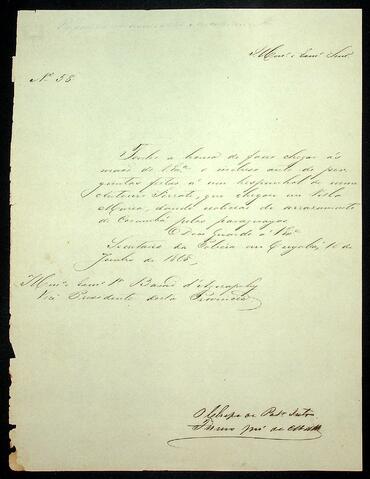 Illmo. e Exmo. Senr.
No. 58
Tenho a honra de fazer chegar ás
mãos de V Exa. o incluso auto de per
guntas feitas á um hespanhol de nome
Antonio que chegou em
dando noticias do arrasamento
de Corumbá pelos paraguayos.
Deos Guarde a V Exa.
Secretaria da Policia em Cuyabá, 10 de
Junho de 1865,
Illmo. Exmo. Sr. Barão d'Aguapehy
Vice Presidente desta Provincia
O Chefe de